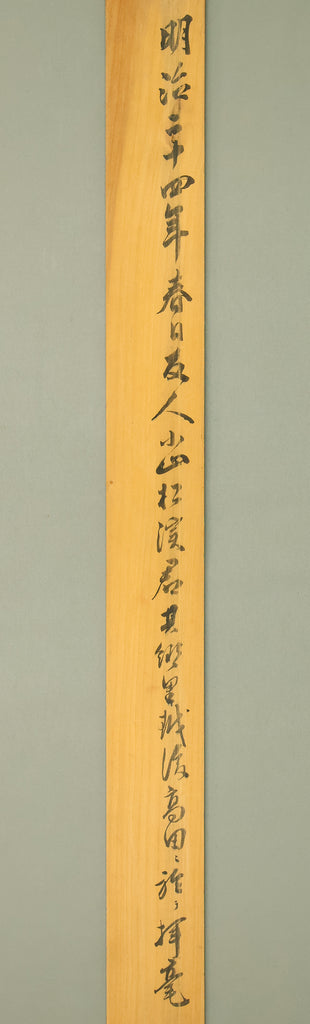 明治二十四年春日友人小山松溪君其郷里越後高田ニ於テ揮毫